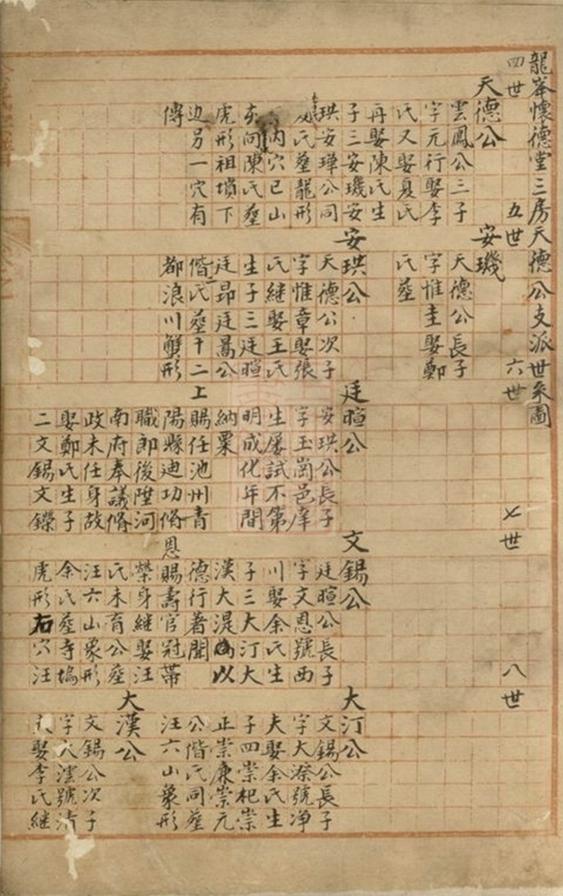 龍峯懷德堂三房天德公支派世系圖
四世 五世 六世 七世 八世
天德公
雲鳳公三子
字元行娶李
氏又娶夏氏
再娶陳氏生
子三安璣安
珙安璍公同
氏塟龍形
内穴巳山
亥向陳氏塟
虎形祖墳下
边另一穴有
傳
安璣
天德公長子
字惟圭娶鄭
氏塟
安珙公
天德公次子
字惟章娶張
氏继娶王氏
生子三廷暄
廷昻廷暠公
偕氏塟十二
都浪川蟹形
廷暄公
安珙公長子
字玉崗邑庠
生屡試不第
明成化年間
納粟
上賜任池州青
陽縣迪功脩
職郎後陞河
南府奉議脩
政未任身故
娶鄭氏生子
二文錫文鑠
文錫公
廷暄公長子
字文恩號西
川娶余氏生
子三大汀大
漢大湜以
德行著聞
恩賜壽官冠帶
榮身継娶汪
氏未育公塟
汪六山象形
余氏塟寺塢
虎形右穴汪
大汀公
文錫公長子
字大滁號净
夫娶余氏生
子四崇杞崇
正崇廉崇元
公偕氏同塟
汪六山象形
大漢公
文錫公次子
字大澐號清
夫娶李氏継